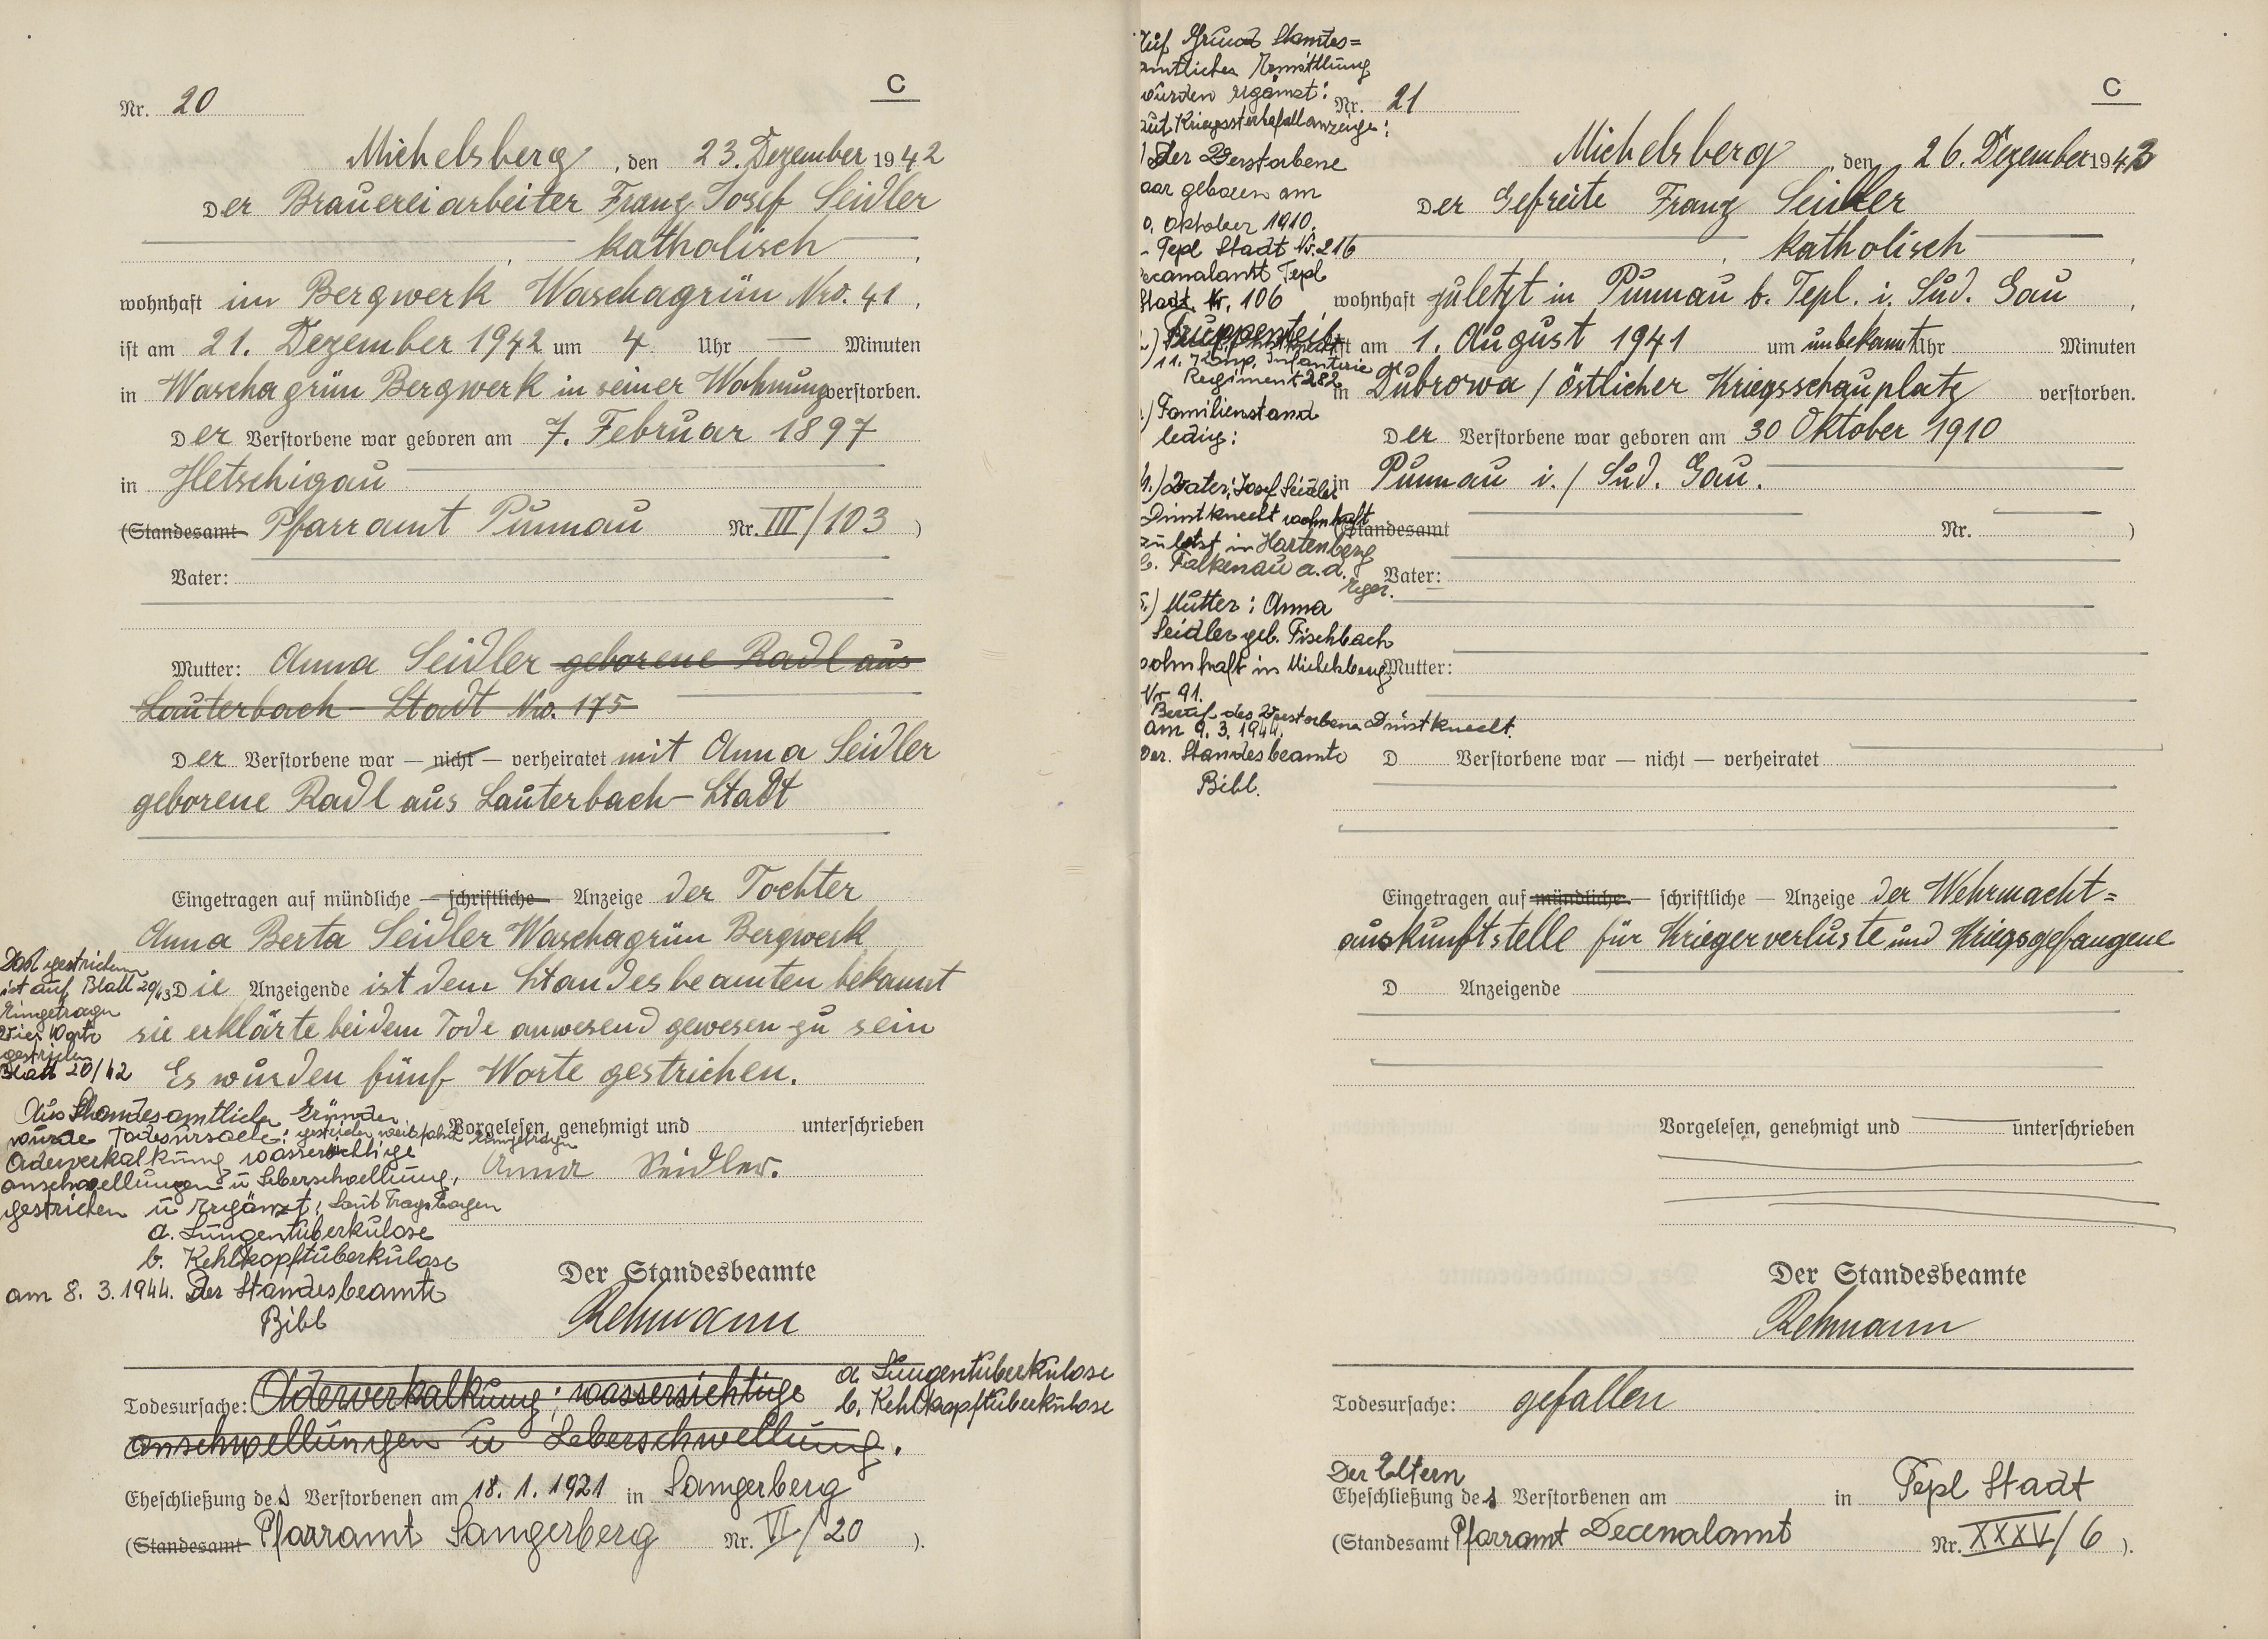 C
Nr. 20
Michelsberg, den 23. Dezember 1942
Der Brauereiarbeiter Franz Josef Seidler
katholisch,
wohnhaft im Bergwerk Waschagrün Nro. 41,
ist am 21. Dezember 1942 um 4 Uhr — Minuten
in Waschagrün Bergwerk in seiner Wohnung verstorben.
Der Verstorbene war geboren am 7. Februar 1897
in Hetschigau
(Standesamt Pfarramt Punnau Nr. III/103)
Vater:
Mutter: Anna Seidler geborene Radl aus
Lauterbach - Stadt Nro. 175
Der Verstorbene war — nicht — verheiratet mit Anna Seidler
geborene Radl aus Lauterbach - Stadt
Eingetragen auf mündliche — schriftliche — Anzeige der Tochter
Anna Berta Seidler Waschagrün Bergwerk
Die Anzeigende ist dem Standesbeamten bekannt
sie erklärte bei dem Tode anwesend gewesen zu sein
Es wurden fünf Worte gestrichen.
Vorgelesen, genehmigt und unterschrieben
Anna Seidler.
Der Standesbeamte
Rehmann
gestrichen
ist auf Blatt 20/43
Eingetragen
Vier Worte
gestrichen
Blatt 20/42
Aus Standesamtlichen Gründen
wurde Todesursache: gestrichen
Aderverkalkung wassersichtige
anschwellungen u Leberschwellung,
gestrichen u Ergänzt: Laut Fragebogen
a. Lungentuberkulose
b. Kehlkopftuberkulose
am 8. 3. 1944. Der Standesbeamte
Bibl
Todesursache: Aderverkalkung; wassersichtige
anschwellungen u Leberschwellung.
a. Lungentuberkulose
b. Kehlkopftuberkulose
Eheschließung des Verstorbenen am 18. 1. 1921 in Sangerberg
(Standesamt Pfarramt Sangerberg Nr. VI/20).
C
Nr. 21
Michelsberg, den 26. Dezember 1943
Der Gefreite Franz Seidler
katholisch,
wohnhaft zuletzt in Punnau b. Tepl. i. Sud. Gau,
ist am 1. August 1941 um unbekannt Uhr Minuten
in Dubrowa / östlicher Kriegsschauplatz verstorben.
Der Verstorbene war geboren am 30 Oktober 1910
in Punnau i./ Sud. Gau.
(Standesamt Nr. )
Vater:
Mutter:
D Verstorbene war — nicht — verheiratet
Eingetragen auf mündliche — schriftliche — Anzeige der Wehrmacht=
auskunftstelle für Kriegerverluste und Kriegsgefangene
D Anzeigende
Vorgelesen, genehmigt und unterschrieben
Der Standesbeamte
Rehmann
Auf Grund Standes=
amtlicher Ermittlung
wurden ergänzt:
laut Kriegssterbefallanzeige:
1) Der Verstorbene
war geboren am
Oktober 1910.
Tepl Stadt Nr. 216
Decanalamt Tepl
Stadt Nr. 106
2.) Truppenteil
11. Komp. Infanterie
Regiment 282
3.) Familienstand
ledig:
4.) Vater: Josef Seidler
Dinstknecht wohnhaft
zuletzt in Hartenberg
b. Falkenau a. d.
Eger.
5.) Mutter: Anna
Seidler geb. Fischbach
wohnhaft in Michelsberg
Nr 91.
Beruf des Verstorbene Dinstknecht.
am 9. 3. 1944.
Der. Standesbeamte
Bibl.
Todesursache: gefallen
Der Eltern
Eheschließung des Verstorbenen am in Tepl Stadt
(Standesamt Pfarramt Decenalamt Nr. XXXV/6).